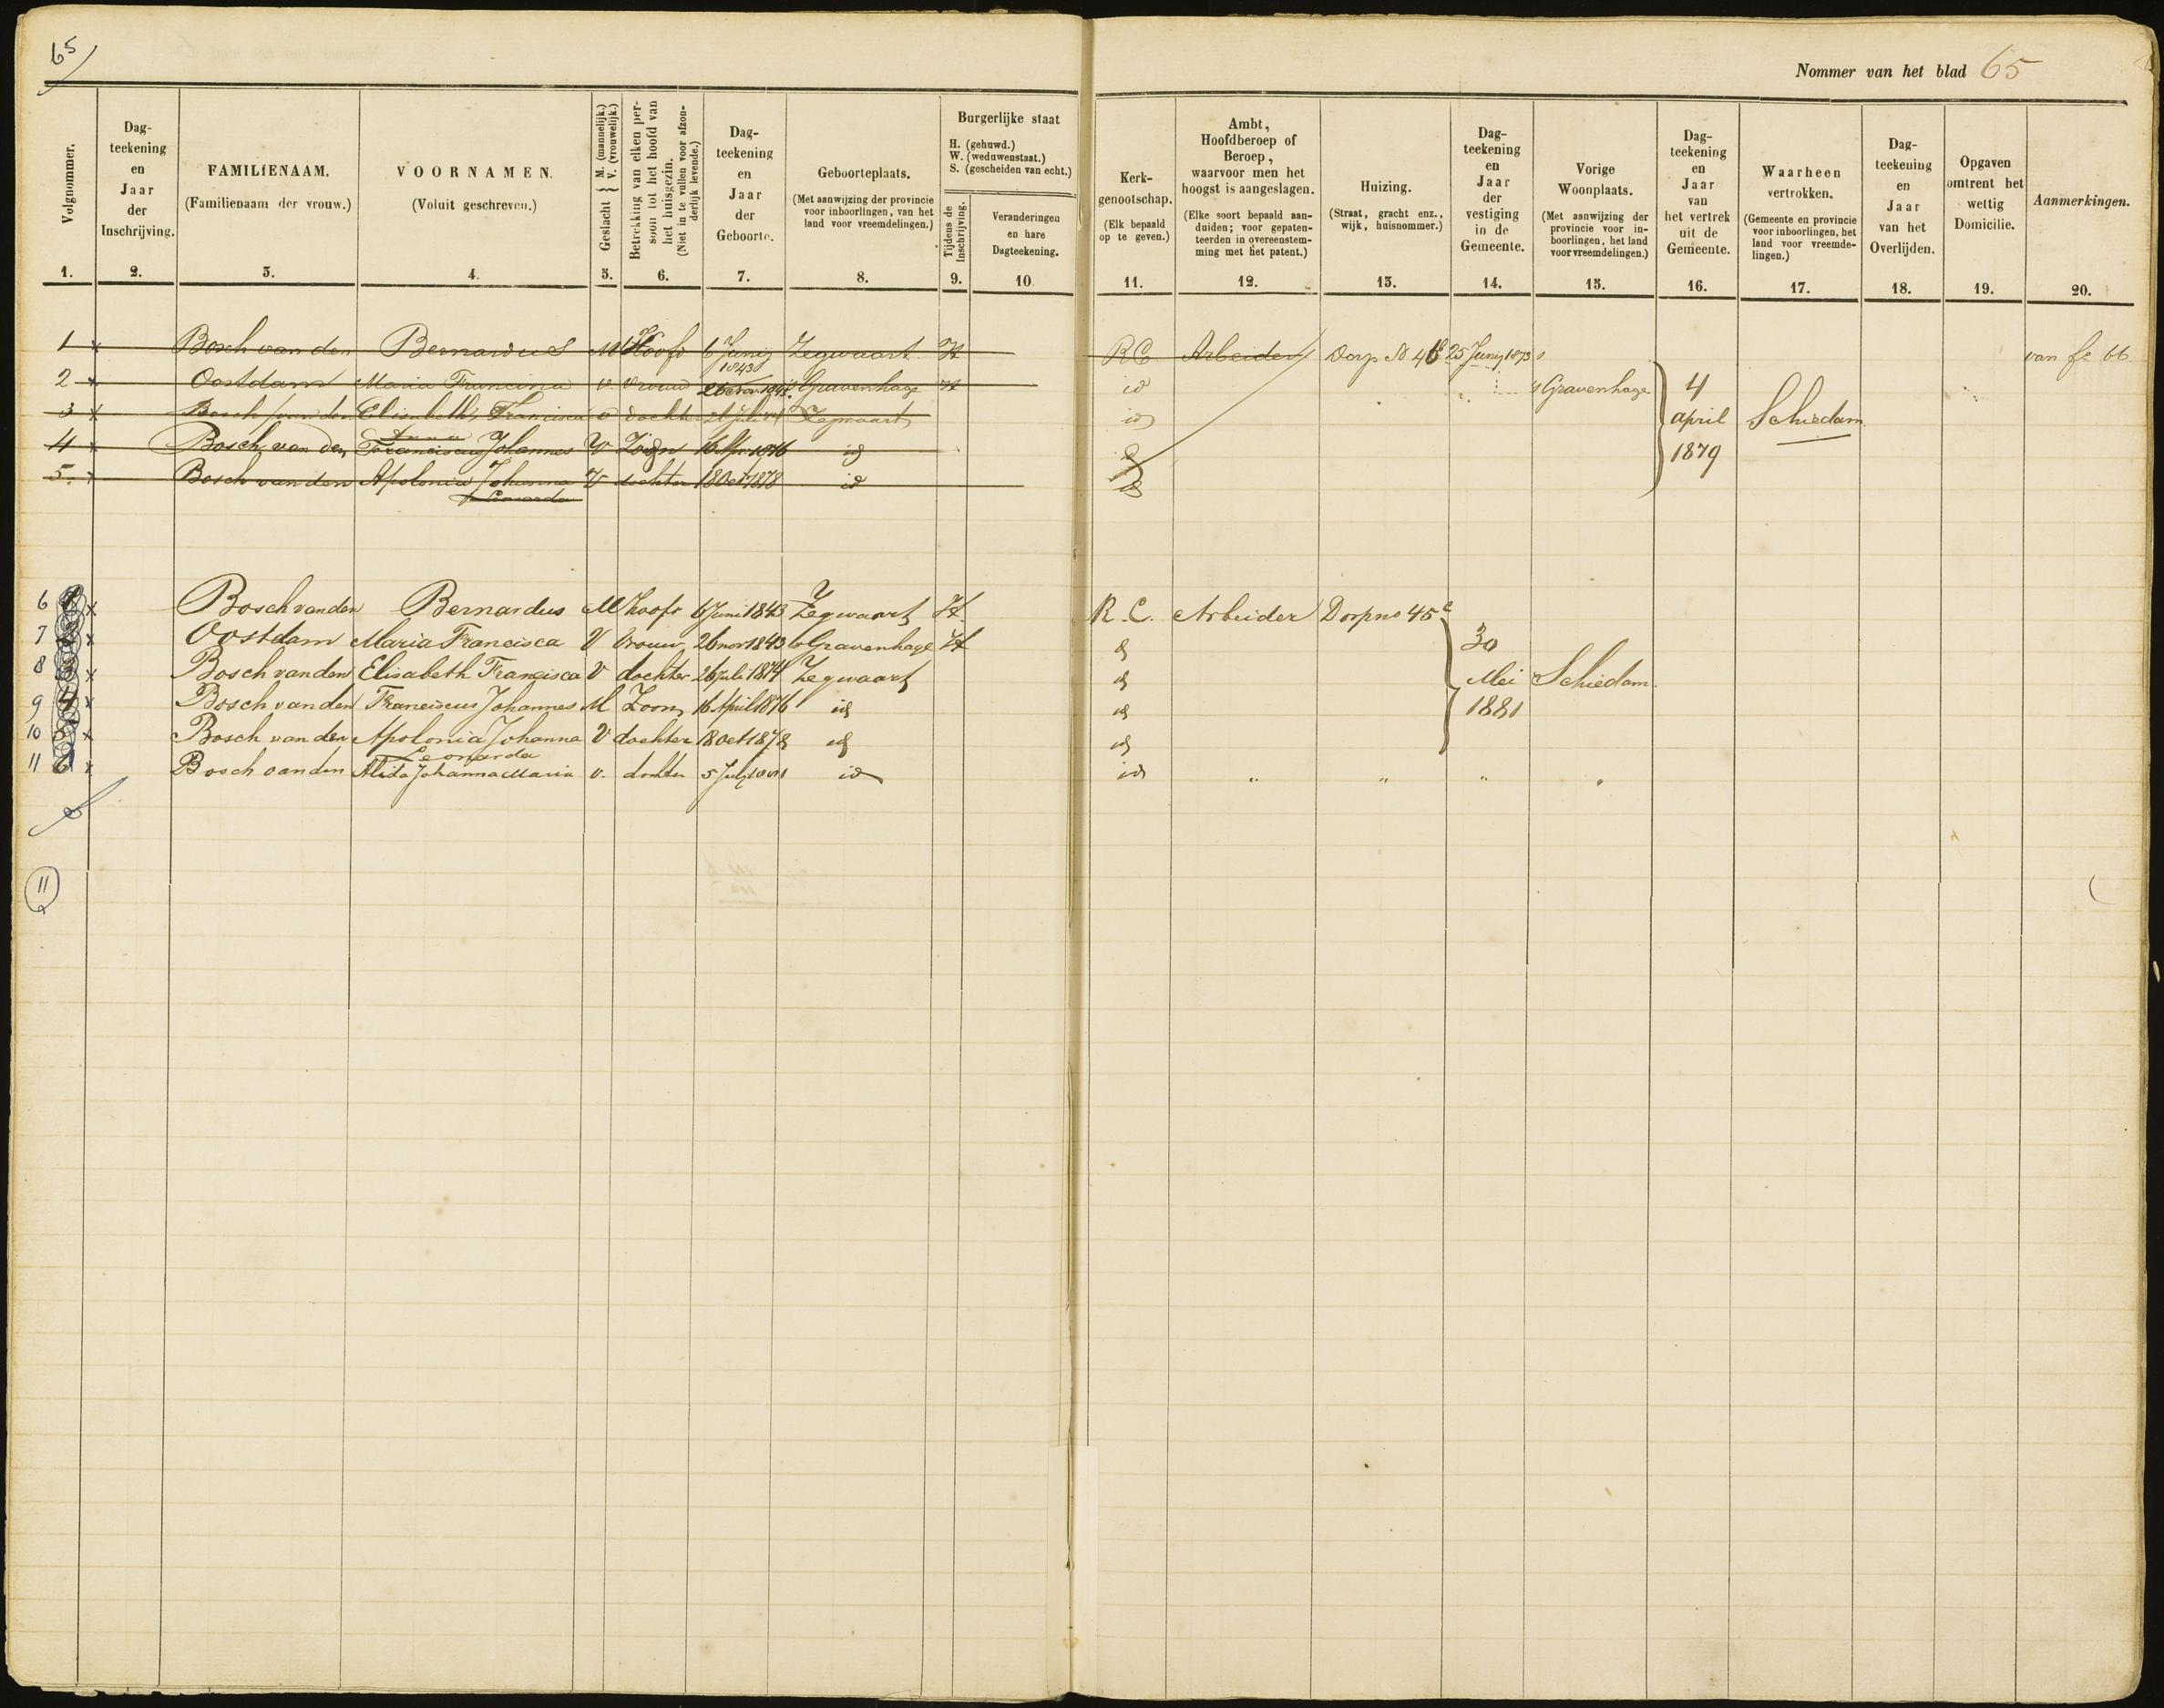 65
Nommer van het blad 65
Volgnommer.
1.
Dag-
teekening
en
Jaar
der
Inschrijving.
2.
FAMILIENAAM.
(Familienaam der vrouw.)
3.
VOORNAMEN.
(Voluit geschreven.)
4.
Geslacht { M. (mannelijk.) V. (vrouwelijk.)
5.
Betrekking van elken per-
soon tot het hoofd van
het huisgezin.
(Niet in te vullen voor afzon-
derlijk levende.)
6.
Dag-
teekening
en
Jaar
der
Geboorte.
7.
Geboorteplaats.
(Met aanwijzing der provincie
voor inboorlingen, van het
land voor vreemdelingen.)
8.
Burgerlijke staat
H. (gehuwd.)
W. (weduwenstaat.)
S. (gescheiden van echt.)
Tijdens de
Inschrijving.
9.
Veranderingen
en hare
Dagteekening.
10.
Kerk-
genootschap.
(Elk bepaald
op te geven.)
11.
Ambt,
Hoofdberoep of
Beroep,
waarvoor men het
hoogst is aangeslagen.
(Elke soort bepaald aan-
duiden; voor gepaten-
teerden in overeenstem-
ming met het patent.)
12.
Huizing.
(Straat, gracht enz.,
wijk, huisnommer.)
13.
Dag-
teekening
en
Jaar
der
vestiging
in de
Gemeente.
14.
Vorige
Woonplaats.
(Met aanwijzing der
provincie voor in-
boorlingen, het land
voor vreemdelingen.)
15.
Dag-
teekening
en
Jaar
van
het vertrek
uit de
Gemeente.
16.
Waarheen
vertrokken.
(Gemeente en provincie
voor inboorlingen, het
land voor vreemde-
lingen.)
17.
Dag-
teekening
en
Jaar
van het
Overlijden.
18.
Opgaven
omtrent het
wettig
Domicilie.
19.
Aanmerkingen.
20.
1 x Bosch van den Bernardus M Hoofd 6 Junij 1843 Zegwaart H R C Arbeider Dorp N 25 Junij 1873 van fo 66
2 x Oostdam Maria Francina v. vrouw 26 Nov 's Gravenhage H id 's Gravenhage
3 x Bosch van den Elisabeth Francisca v dochter Zegwaart id
4 x Bosch van den Franciscus Johannes Zoon 16 Apr 1876 id
5. x Bosch van den Apolonia Johanna Leonarda V dochter 18 Oct 1878 id id
4
april
1879
Schiedam
6 1 x Bosch van den Bernardus M hoofd 6 Juni 1843 Zegwaart H R.C. Arbeider Dorp no 45 c
7 2 x Oostdam Maria Francisca V Vrouw 26 nov 1843 's Gravenhage H id
8 3 x Bosch van den Elisabeth Francisca V dochter 26 Juli 1874 Zegwaart id
9 4 x Bosch van den Franciscus Johannes M Zoon 16 April 1876 id id
10 5 x Bosch van den Apolonia Johanna Leonarda V dochter 18 Oct 1878 id id
30
Mei
1881
Schiedam
11 6 x Bosch van den Alida Johanna Maria v. dochter 5 July id id " " " "
11